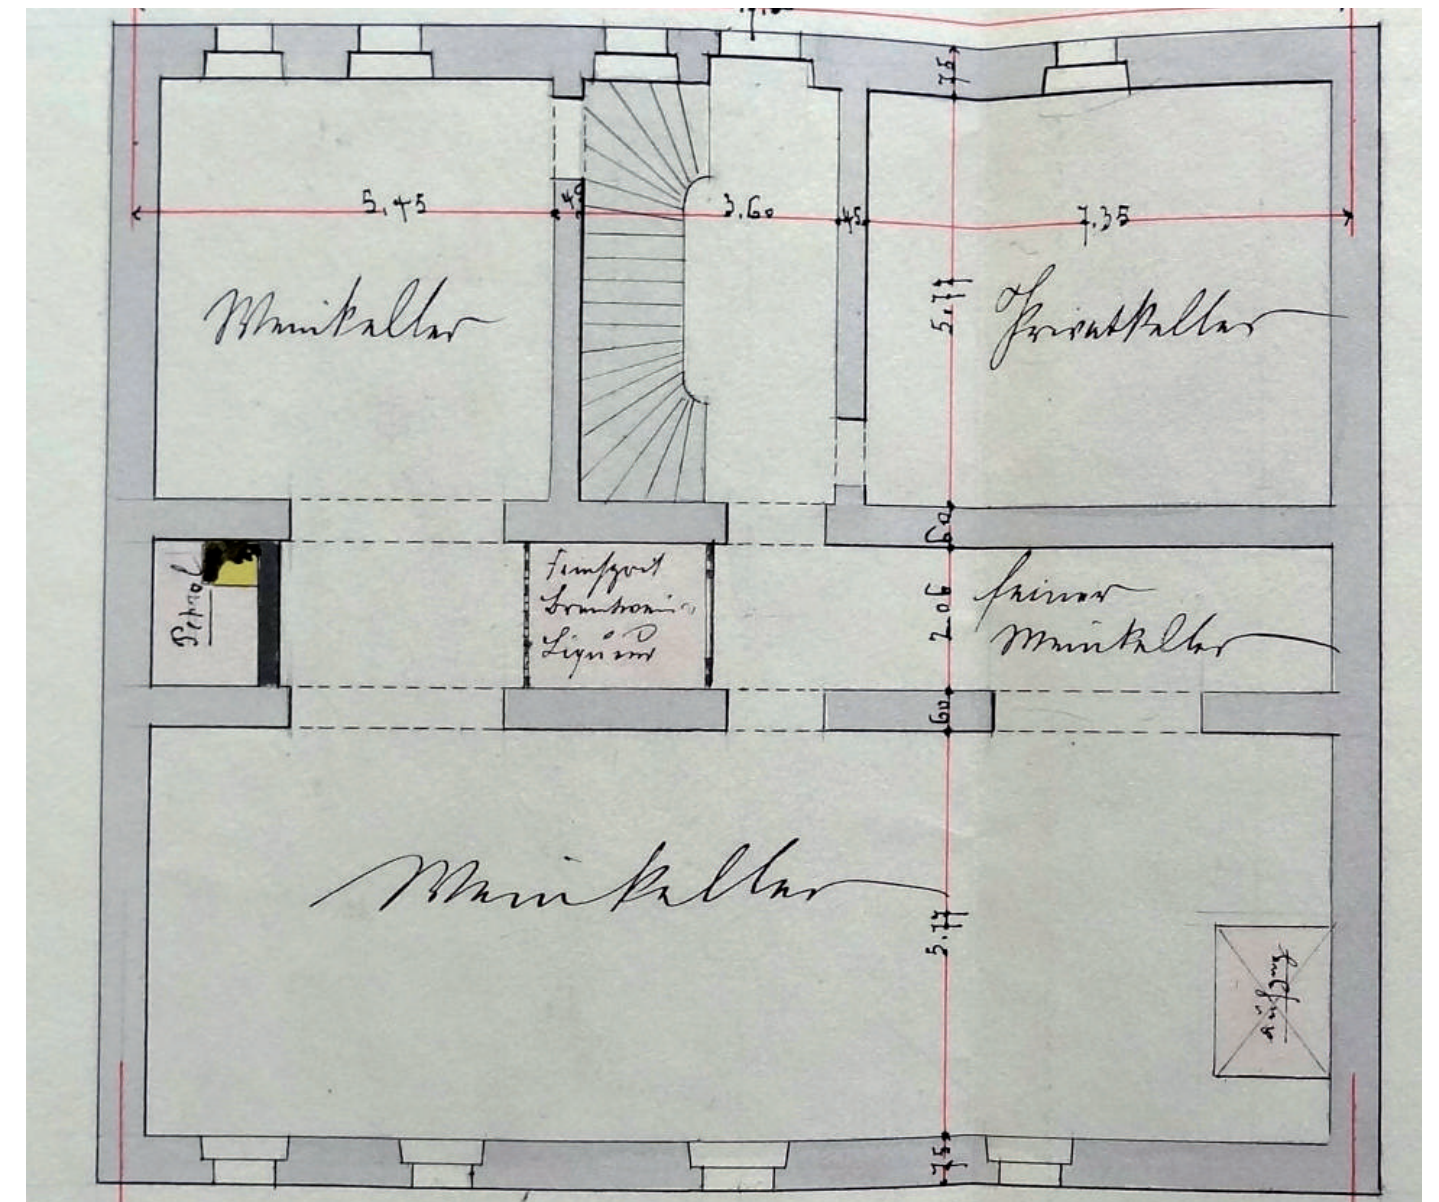 5,45
45
3.60
45
7.35
75
5,77
Weinkeller
Privatkeller
60
Petrol
Feinsprit
Brentwein
Liqueur
2.06
feiner
Weinkeller
60
Weinkeller
5.77
Aufzug
75